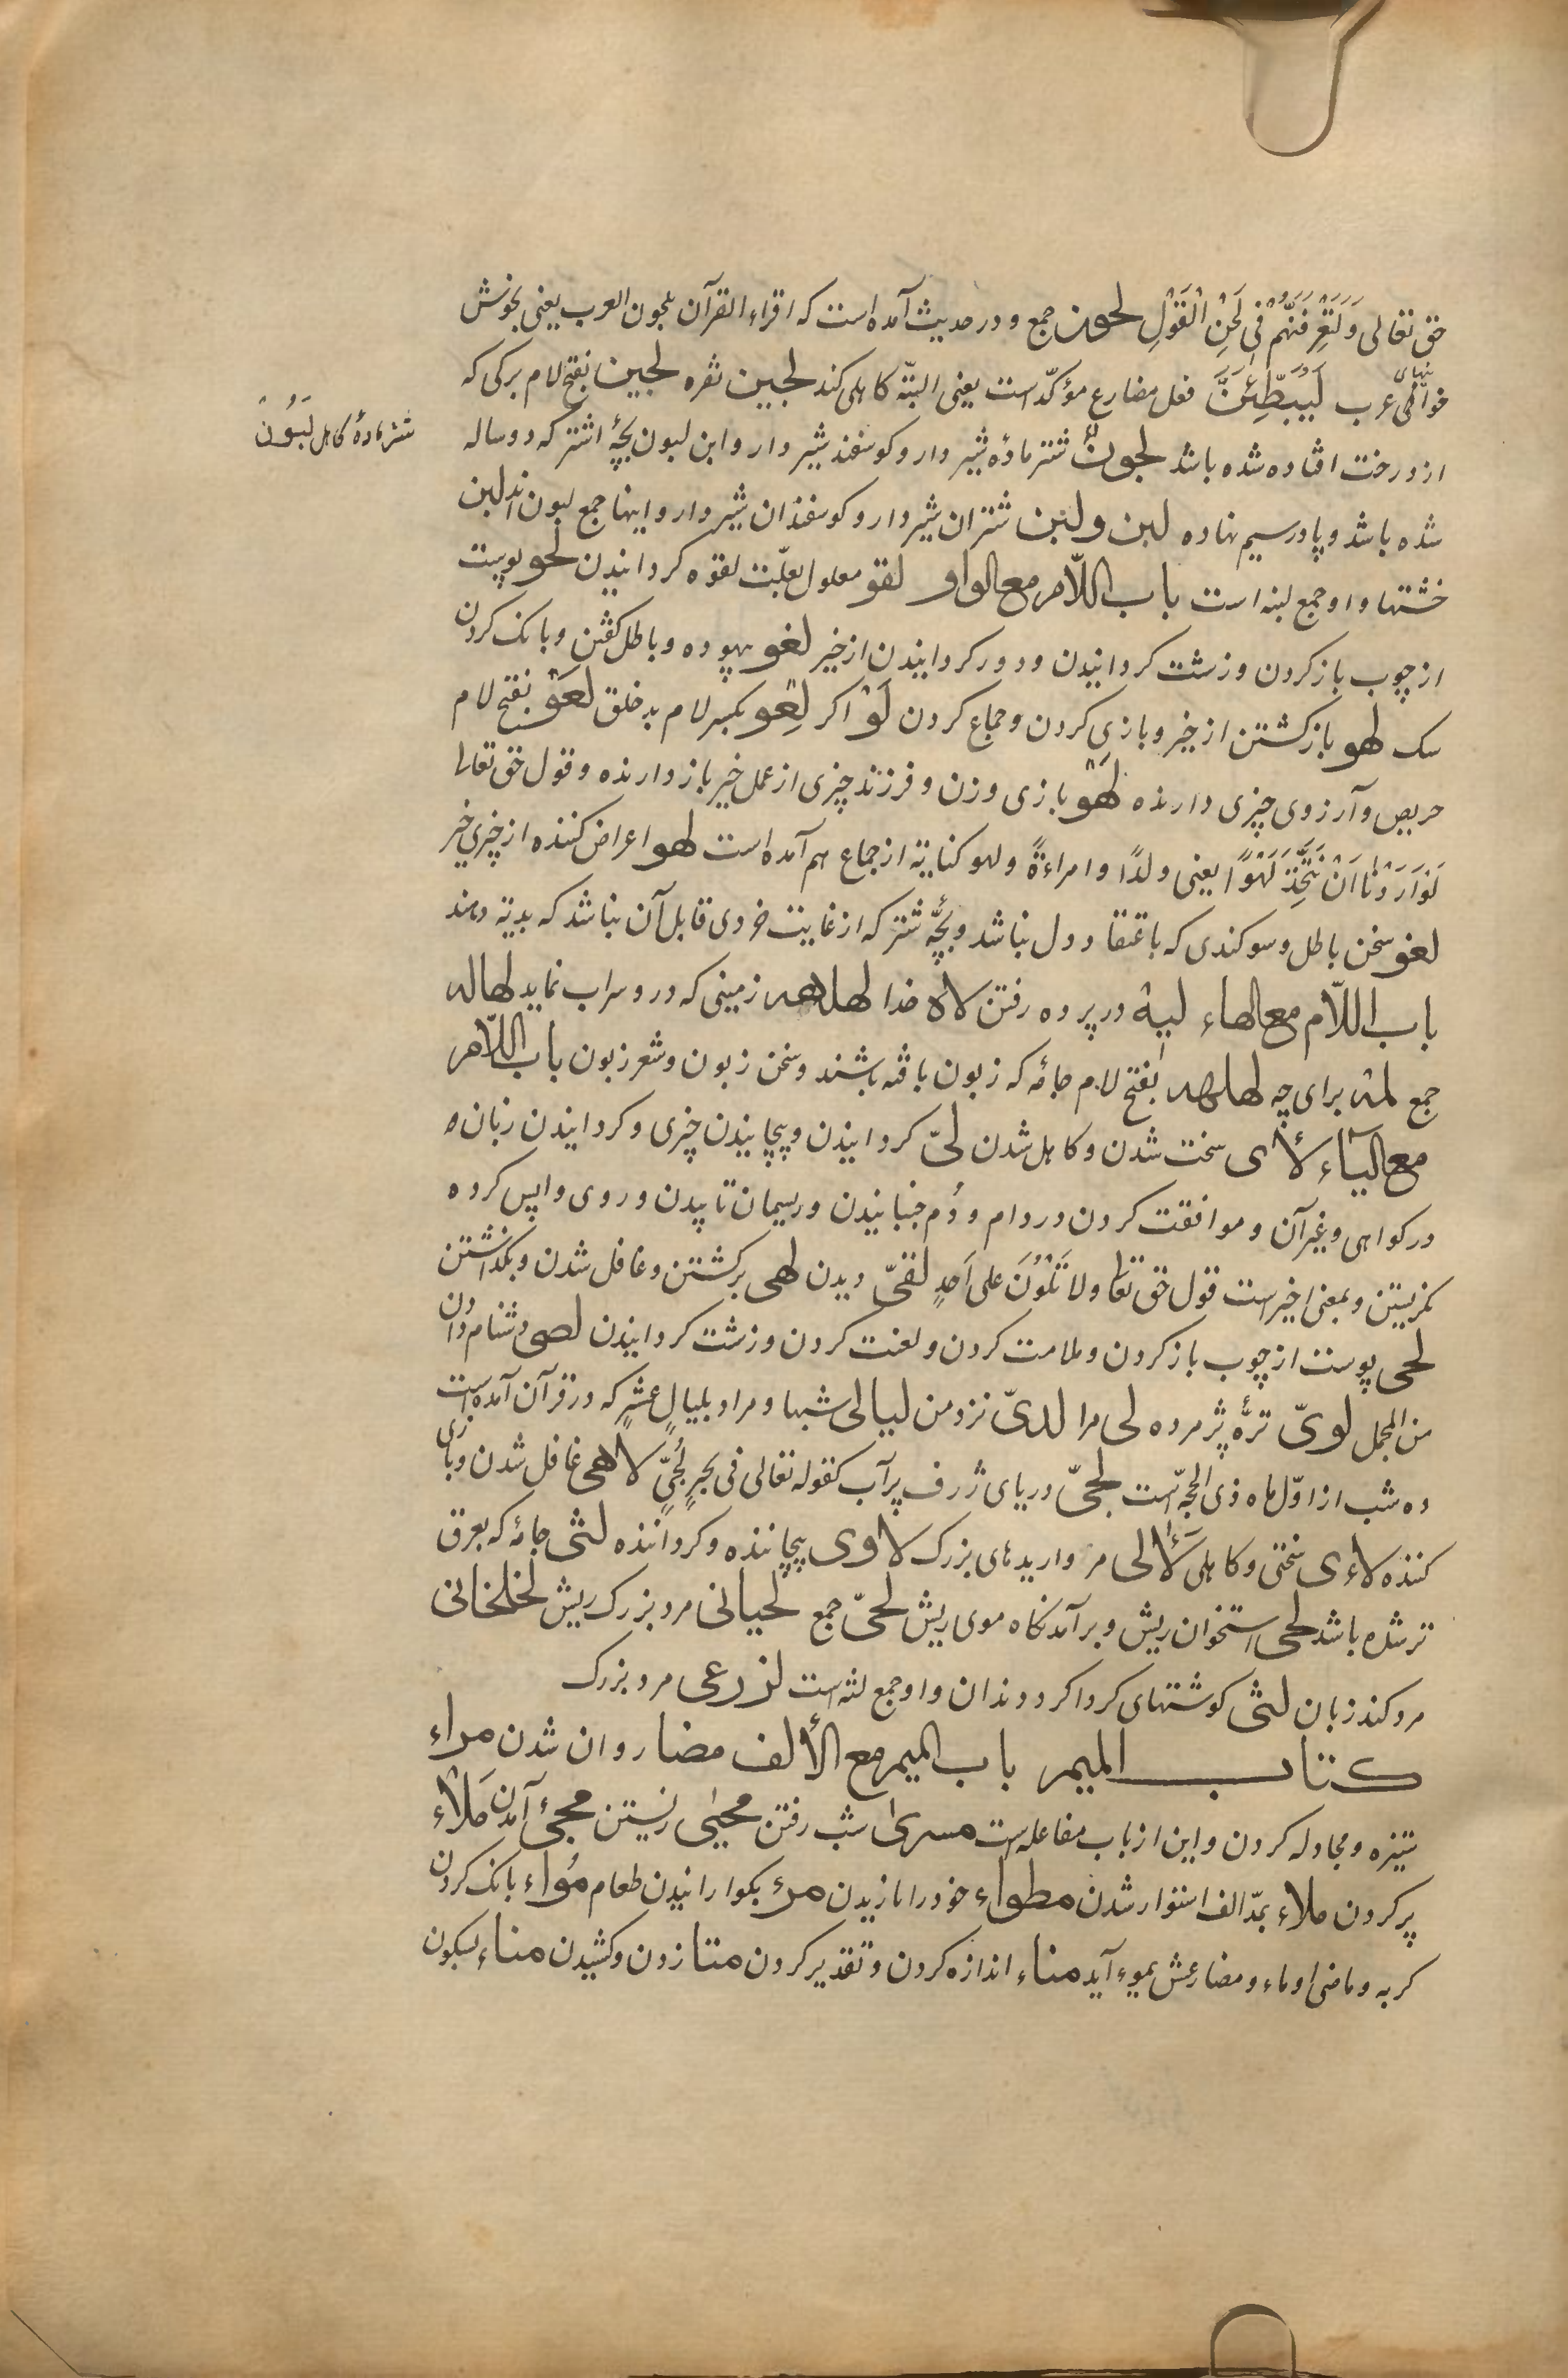 حق تعالی وَلَتَعْرِفَنَّهُمْ فِی لَحْنِ الْقَوْلِ لحون جمع و در حدیث آمده است که اقراء القرآن بلحون العرب یعنی بخوش
خوانیهای عرب لَیُبَطِّئَنَّ فعل مضارع مؤکّد است یعنی البتّه کاهلی کند لجین نقره لجین بفتح لام برکی که
از درخت افتاده شده باشد لجونٌ شتر مادۀ شیر دار و کوسفند شیر دار و ابن لبون بچۀ اشتر که دو ساله
شتر مادۀ کاهل لَبُونٌ
شده باشد و پا در سیم نهاده لبن و لبن شتران شیر دار و کوسفندان شیر دار و اینها جمع لبون اند لبن
خشتها و او جمع لبنه است باب اللّام مع الواو لقو معلول بعلّت لقوه کردانیدن لحو پوست
از چوب باز کردن و زشت کردانیدن و دور کردانیدن از خیر لغو بیهوده و باطل کفتن و بانک کردن
سک لهو باز کشتن از خیر و بازی کردن و جماع کردن لَوْ اکر لِعْو بکسر لام بد خلق لَعْو بفتح لام
حریص و آرزوی چیزی دارنده لَهْو بازی و زن و فرزند چیزی از عمل خیر باز دارنده و قول حق تعالیا
لَوْ اَرَدْنَا اَنْ نَتَّخِذَ لَهْوًا یعنی ولدًا و امراءةً و لهو کنایة از جماع هم آمده است لهو اعراض کننده از چیزی خیر
لغو سخن باطل و سوکندی که باعتقاد دل نباشد و بچّۀ شتر که از غایت خردی قابل آن نباشد که بدیة دهند
باب اللّام مع الهاء لیه در پرده رفتن لاه خدا لهلهه زمینی که درو سراب نماید لهاله
جمع لمه برای چه لهلهه بفتح لام جامۀ که زبون بافته باشند و سخن زبون و شعر زبون باب اللّام
مع الیآء لأی سخت شدن و کاهل شدن لیّ کردانیدن و پیچانیدن چیزی و کردانیدن زبان
در کواهی و غیر آن و موافقت کردن در دام و دُم جنبانیدن و ریسمان تابیدن و روی واپس کرده
نکریستن و بمعنی اخیر است قول حق تعا ولا تَلْوُنَ علی اَحَدٍ لقیّ دیدن لهی برکشتن و غافل شدن و بکذاشتن
لحی پوست از چوب باز کردن و ملامت کردن و لعنت کردن و زشت کردانیدن لصی دشنام دادن
من المجمل لویّ ترّۀ پژمرده لی مرا لدیّ نزد من لیالی شبها و مراد بلیالٍ عشرٍ که در قرآن آمده است
ده شب از اوّل ماه ذی الحجّه است لجّیّ دریای ژرف پر آب کقوله تعالی فی بحرٍ لُجّیٍّ لاهی غافل شدن و بازی
کننده لاءی سختی و کاهلی لَآلی مرواریدهای بزرک لاوی پیچاننده و کرداننده لثی جامۀ که بعرق
تر شده باشد لحی استخوان ریش و برآمدنکاه موی ریش لحیّ جمع لحیانی مرد بزرک ریش لخلخانی
مرد کند زبان لثی کوشتهای کرداکرد دندان و او جمع لثه است لزرعی مرد بزرک
کتاب المیم باب المیم مع الألف مضا روان شدن مراء
ستیزه و مجادله کردن و این از باب مفاعله است مسری شب رفتن محیی زیستن مجیٔ آمدن مَلاْء
پر کردن ملاء بمدّ الف استوار شدن مطواء خود را یازیدن مرء بکوارانیدن طعام مُواء بانک کردن
کربه و ماضی او ماء و مضارعش یموء آید مناء اندازه کردن و تقدیر کردن متا زدن و کشیدن مناء بسکون